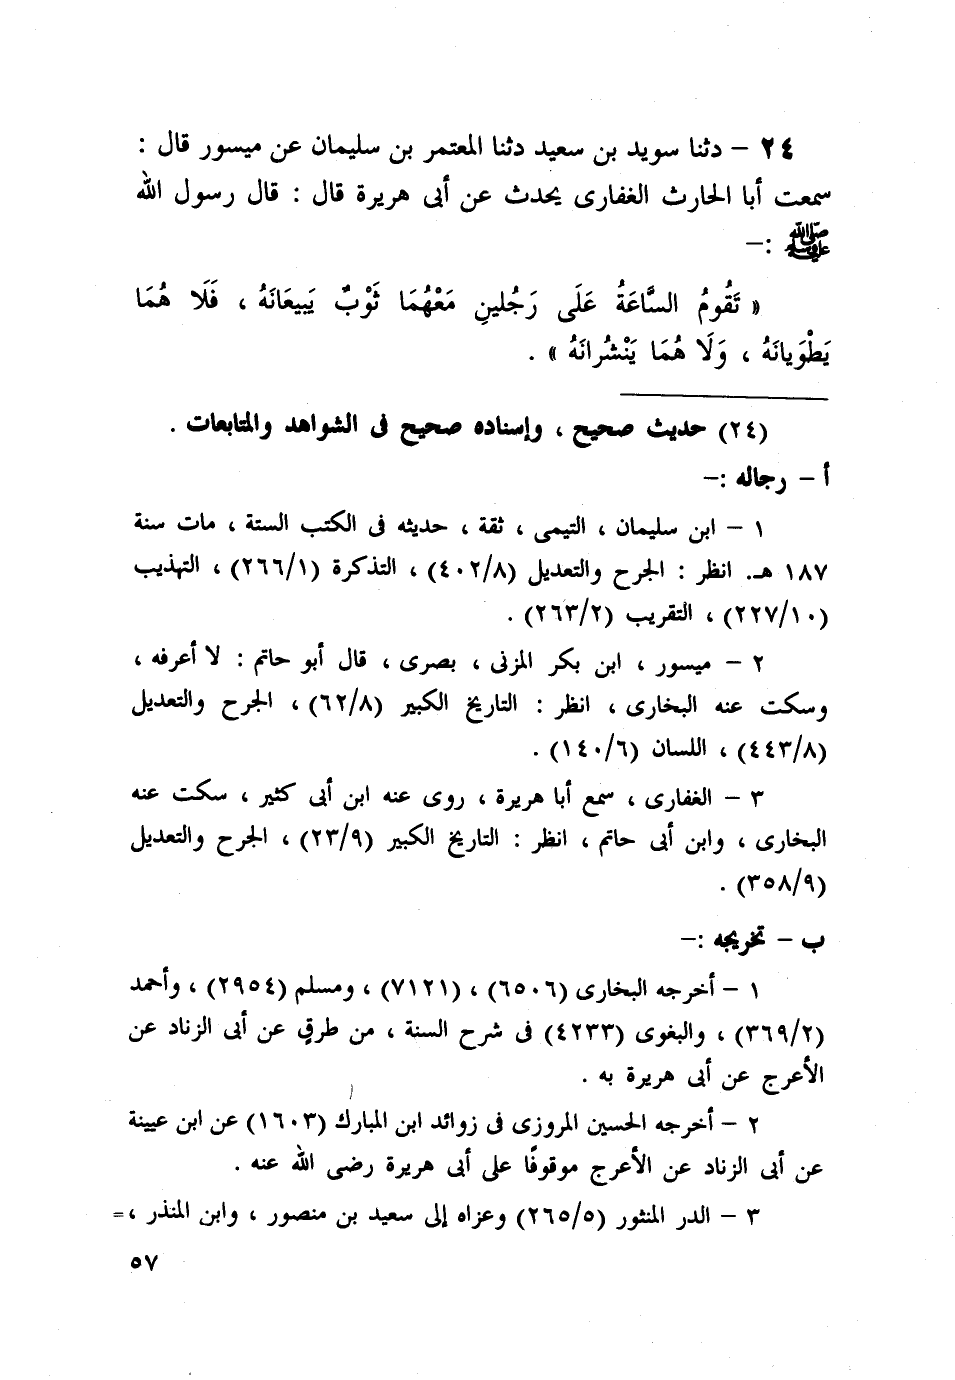 ٢٤ – دثنا سويد بن سعيد دثنا المعتمر بن سليمان عن ميسور قال :
سمعت أبا الحارث الغفارى يحدث عن أبى هريرة قال : قال رسول الله
ﷺ :–
« تَقُومُ السَّاعَةُ عَلَى رَجُلينِ مَعْهُمَا ثَوْبٌ يَبِيعَانَهُ ، فَلَا هُمَا
يَطْوَيانَهُ ، وَلَا هُمَا يَنْشُرانَهُ » .
(٢٤) حديث صحيح ، وإسناده صحيح فى الشواهد والمتابعات .
أ – رجاله :–
١ – ابن سليمان ، التيمى ، ثقة ، حديثه فى الكتب الستة ، مات سنة
١٨٧ هـ. انظر : الجرح والتعديل (٤٠٢/٨) ، التذكرة (٢٦٦/١) ، التهذيب
(٢٢٧/١٠) ، التقريب (٢٦٣/٢) .
٢ – ميسور ، ابن بكر المزنى ، بصرى ، قال أبو حاتم : لا أعرفه ،
وسكت عنه البخارى ، انظر : التاريخ الكبير (٦٢/٨) ، الجرح والتعديل
(٤٤٣/٨) ، اللسان (١٤٠/٦) .
٣ – الغفارى ، سمع أبا هريرة ، روى عنه ابن أبى كثير ، سكت عنه
البخارى ، وابن أبى حاتم ، انظر : التاريخ الكبير (٢٣/٩) ، الجرح والتعديل
(٣٥٨/٩) .
ب – تخريجه :–
١ – أخرجه البخارى (٦٥٠٦) ، (٧١٢١) ، ومسلم (٢٩٥٤) ، وأحمد
(٣٦٩/٢) ، والبغوى (٤٢٣٣) فى شرح السنة ، من طرقٍ عن أبى الزناد عن
الأعرج عن أبى هريرة به .
٢ – أخرجه الحسين المروزى فى زوائد ابن المبارك (١٦٠٣) عن ابن عيينة
عن أبى الزناد عن الأعرج موقوفًا على أبى هريرة رضى الله عنه .
٣ – الدر المنثور (٢٦٥/٥) وعزاه إلى سعيد بن منصور ، وابن المنذر ، =
٥٧